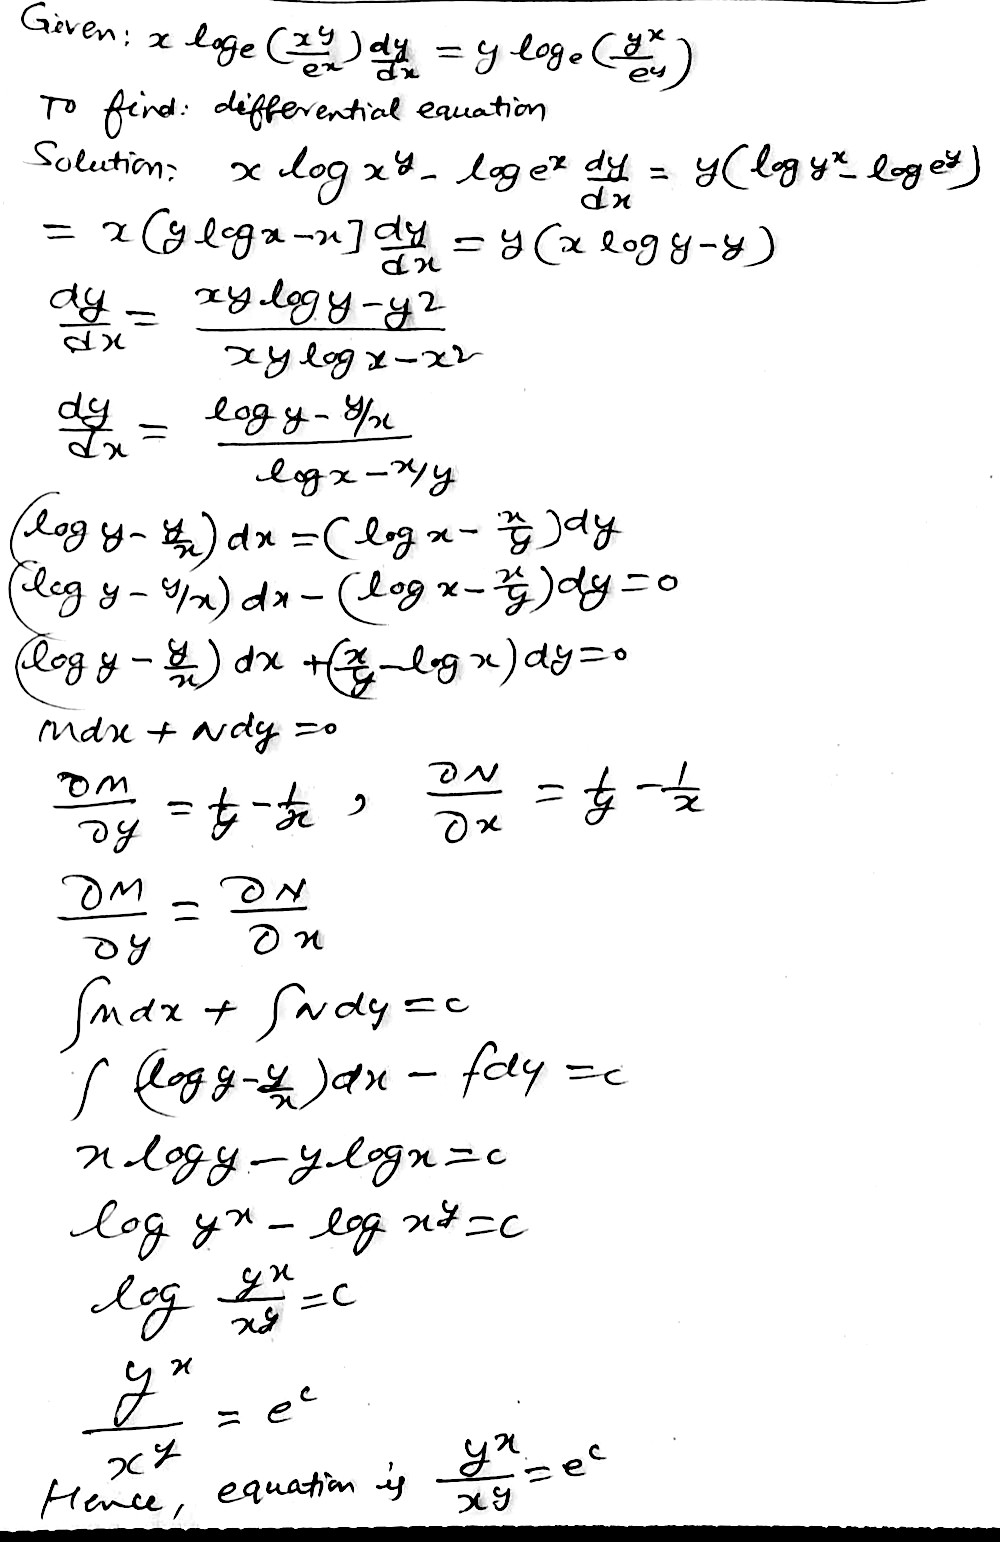 Given: x logₑ (x^y/e^x) dy/dx = y logₑ (y^x/e^y)
To find: differential equation
Solution: x log x^y - log e^x dy/dx = y(log y^x - log e^y)
= x(y log x - x] dy/dx = y(x log y - y)
dy/dx = (xy log y - y2)/(xy log x - x2)
dy/dx = (log y - y/x)/(log x - x/y)
(log y - y/x) dx = (log x - x/y) dy
(log y - y/x) dx - (log x - x/y) dy = 0
(log y - y/x) dx + (x/y - log x) dy = 0
Mdx + Ndy = 0
∂M/∂y = 1/y - 1/x , ∂N/∂x = 1/y - 1/x
∂M/∂y = ∂N/∂x
∫Mdx + ∫Ndy = c
∫ (log y - y/x) dx - ∫dy = c
x log y - y log x = c
log y^x - log x^y = c
log y^x/x^y = c
y^x/x^y = e^c
Hence, equation is y^x/x^y = e^c